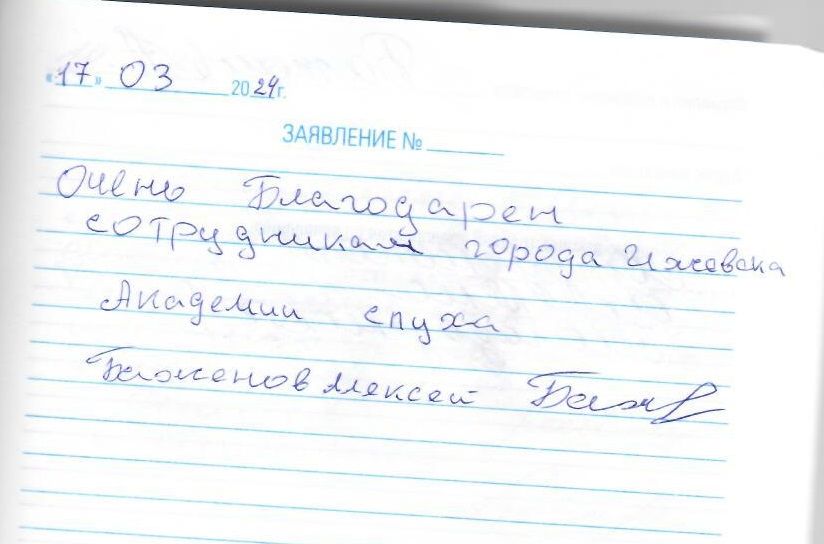 «17» 03 2024г.
ЗАЯВЛЕНИЕ №
Очень Благодарен
сотрудникам города Ижевска
Академии слуха
Баженов Алексей Баж